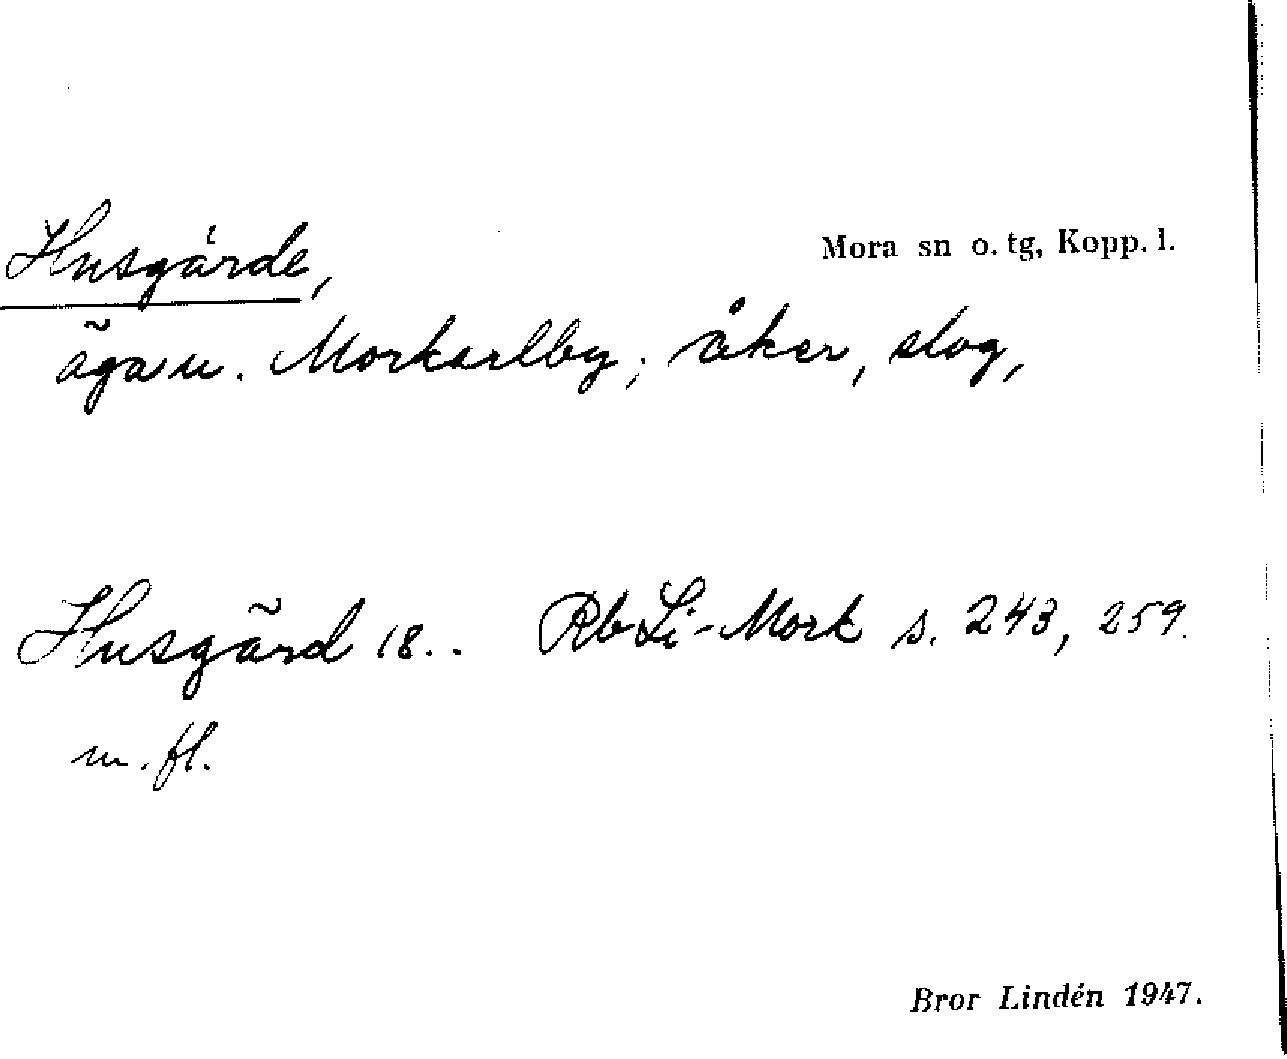 Husgärde,
Mora sn o. tg, Kopp. l.
äga u. Morkarlby; åker, slog,
Husgärd 18.. Rb Li-Mork s. 243, 259.
m. fl.
Bror Lindén 1947.